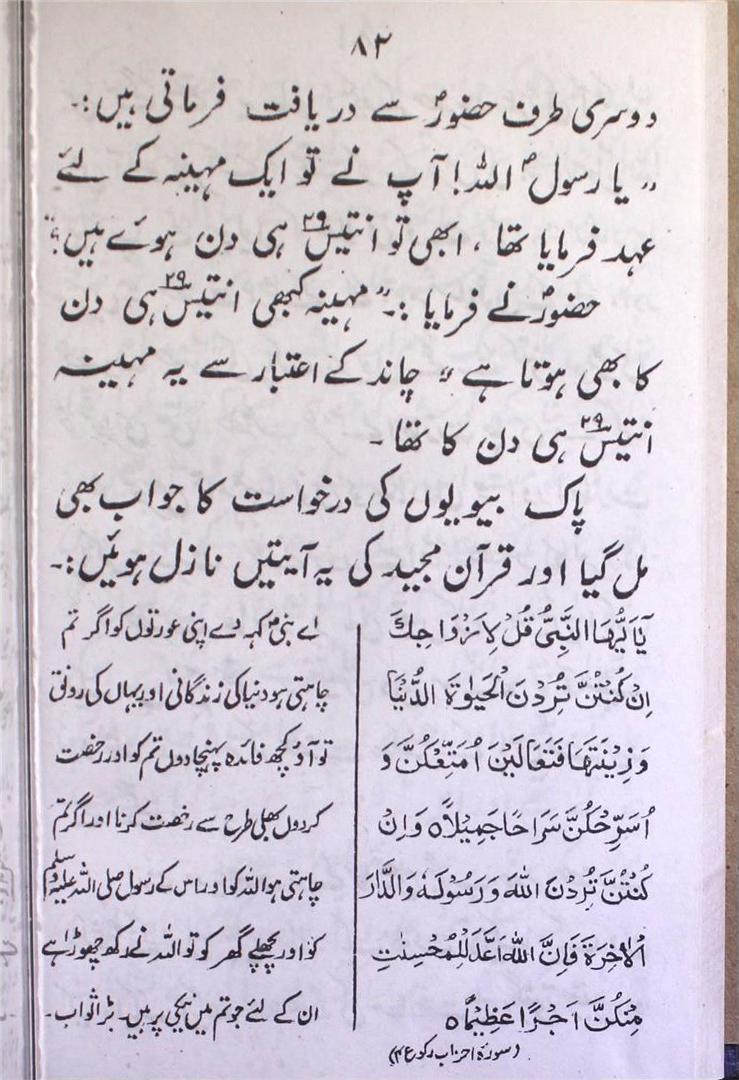 ۸۲
دوسری طرف حضورؐ سے دریافت فرماتی ہیں:۔
”یا رسولؐ اللہ! آپ نے تو ایک مہینہ کے لئے
عہد فرمایا تھا، ابھی تو انتیس۲۹ ہی دن ہوئے ہیں؟“
حضورؐ نے فرمایا:۔ ”مہینہ کبھی انتیس۲۹ ہی دن
کا بھی ہوتا ہے“ چاند کے اعتبار سے یہ مہینہ
انتیس۲۹ ہی دن کا تھا۔
پاک بیویوں کی درخواست کا جواب بھی
مل گیا اور قرآن مجید کی یہ آیتیں نازل ہوئیں:۔
يٰٓاَيُّهَا النَّبِىُّ قُلْ لِاَزْوَاجِكَ
اِنْ كُنْتُنَّ تُرِدْنَ الْحَيٰوةَ الدُّنْيَا
وَزِيْنَتَهَا فَتَعَالَيْنَ اُمَتِّعْكُنَّ وَ
اُسَرِّحْكُنَّ سَرَاحًا جَمِيْلًا ہ وَاِنْ
كُنْتُنَّ تُرِدْنَ اللّٰهَ وَرَسُوْلَهٗ وَالدَّارَ
الْاٰخِرَةَ فَاِنَّ اللّٰهَ اَعَدَّ لِلْمُحْسِنٰتِ
مِنْكُنَّ اَجْرًا عَظِيْمًا ہ
(سورۃ احزاب رکوع ۴)
اے نبیؐ کہہ دے اپنی عورتوں کو اگر تم
چاہتی ہو دنیا کی زندگانی اور یہاں کی رونق
تو آؤ کچھ فائدہ پہنچا دوں تم کو اور رخصت
کر دوں بھلی طرح سے رخصت کرنا اور اگر تم
چاہتی ہو اللہ کو اور اس کے رسول صلی اللہ علیہ وسلم
کو اور پچھلے گھر کو تو اللہ نے رکھ چھوڑا ہے
ان کے لئے جو تم میں نیکی پر ہیں۔ بڑا ثواب۔